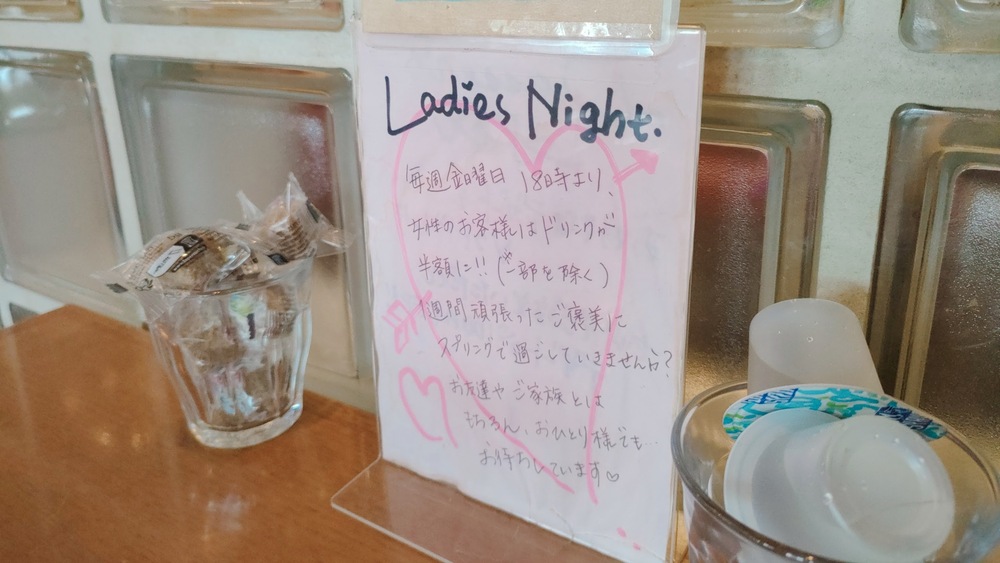 Ladies Night.
毎週金曜日 18時より、
女性のお客様はドリンクが
半額に!! (※一部を除く)
1週間頑張ったご褒美に
スプリングで過ごしていきませんか?
お友達やご家族とは
もちろん、おひとり様でも…
お待ちしています♡